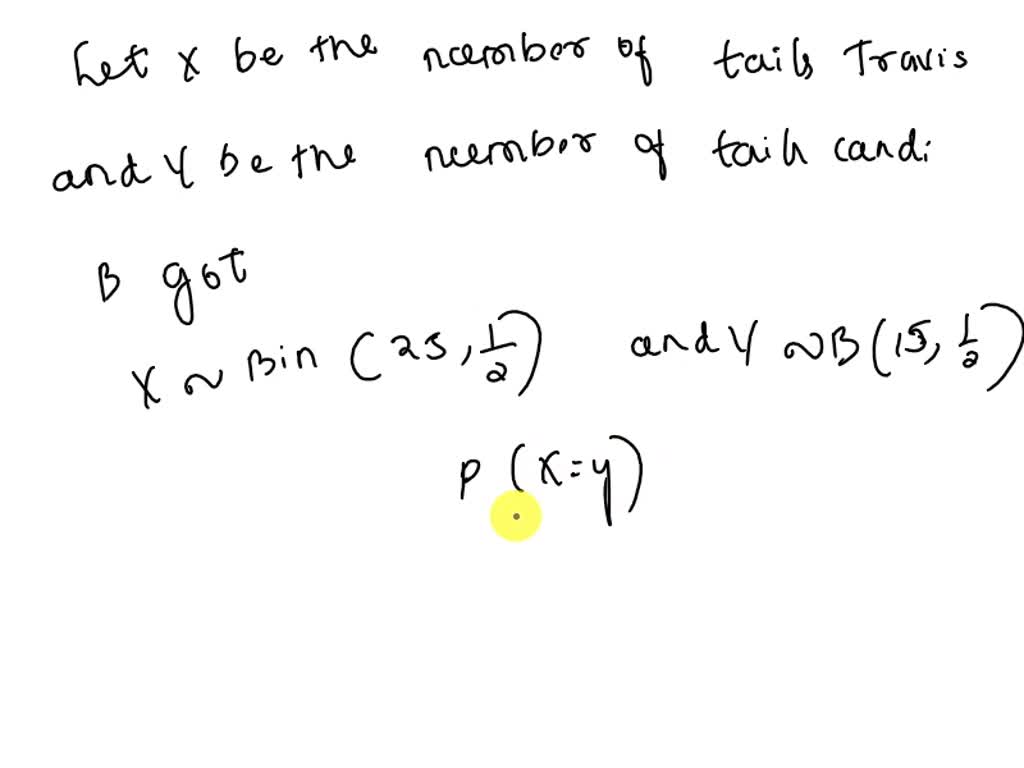 Let X be the number of tails Travis
and Y be the number of tails candi
B got
X ~ Bin (25, 1/2) and Y ~ B(15, 1/2)
P (X=Y)